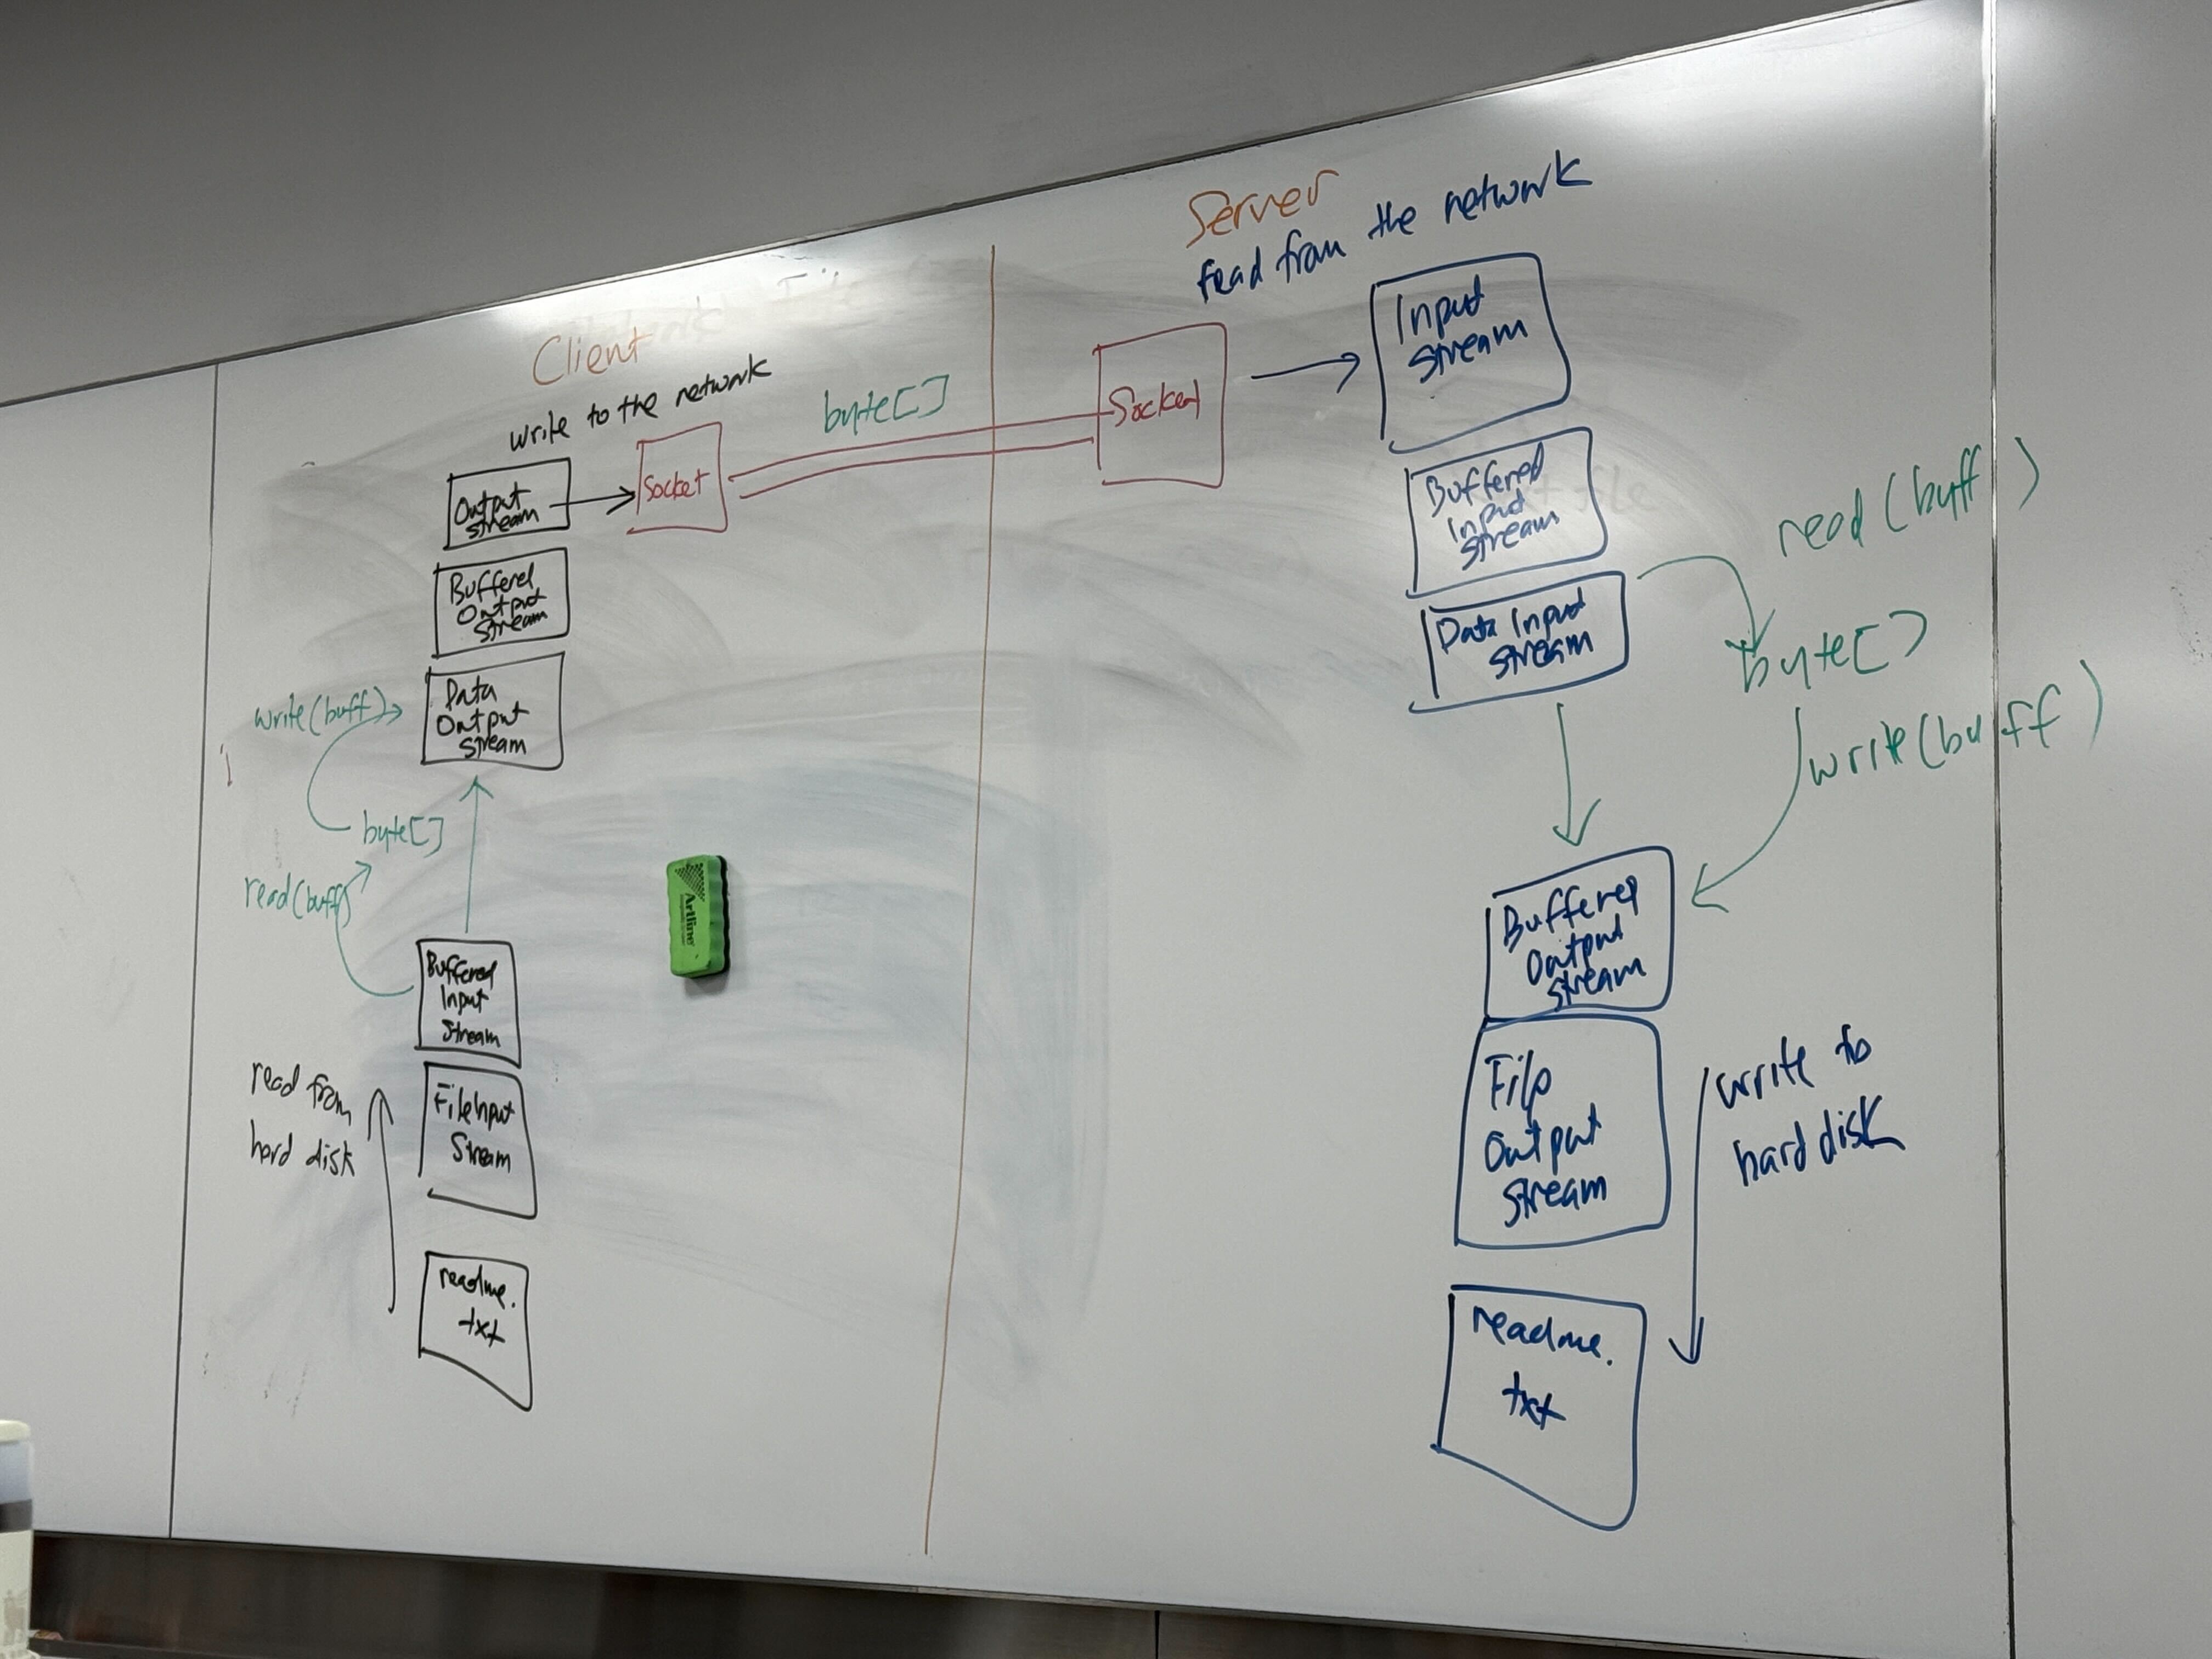 Client
write to the network
Output
stream
Socket
byte[]
Buffered
Output
stream
write(buff)
Data
Output
stream
byte[]
read(buff)
Buffered
Input
Stream
read from
hard disk
FileInput
Stream
readme.
txt
Artline
Server
read from the network
Socket
Input
stream
Buffered
Input
stream
read(buff)
Data Input
stream
byte[]
write(buff)
Buffered
Output
stream
File
Output
stream
write to
hard disk
readme.
txt